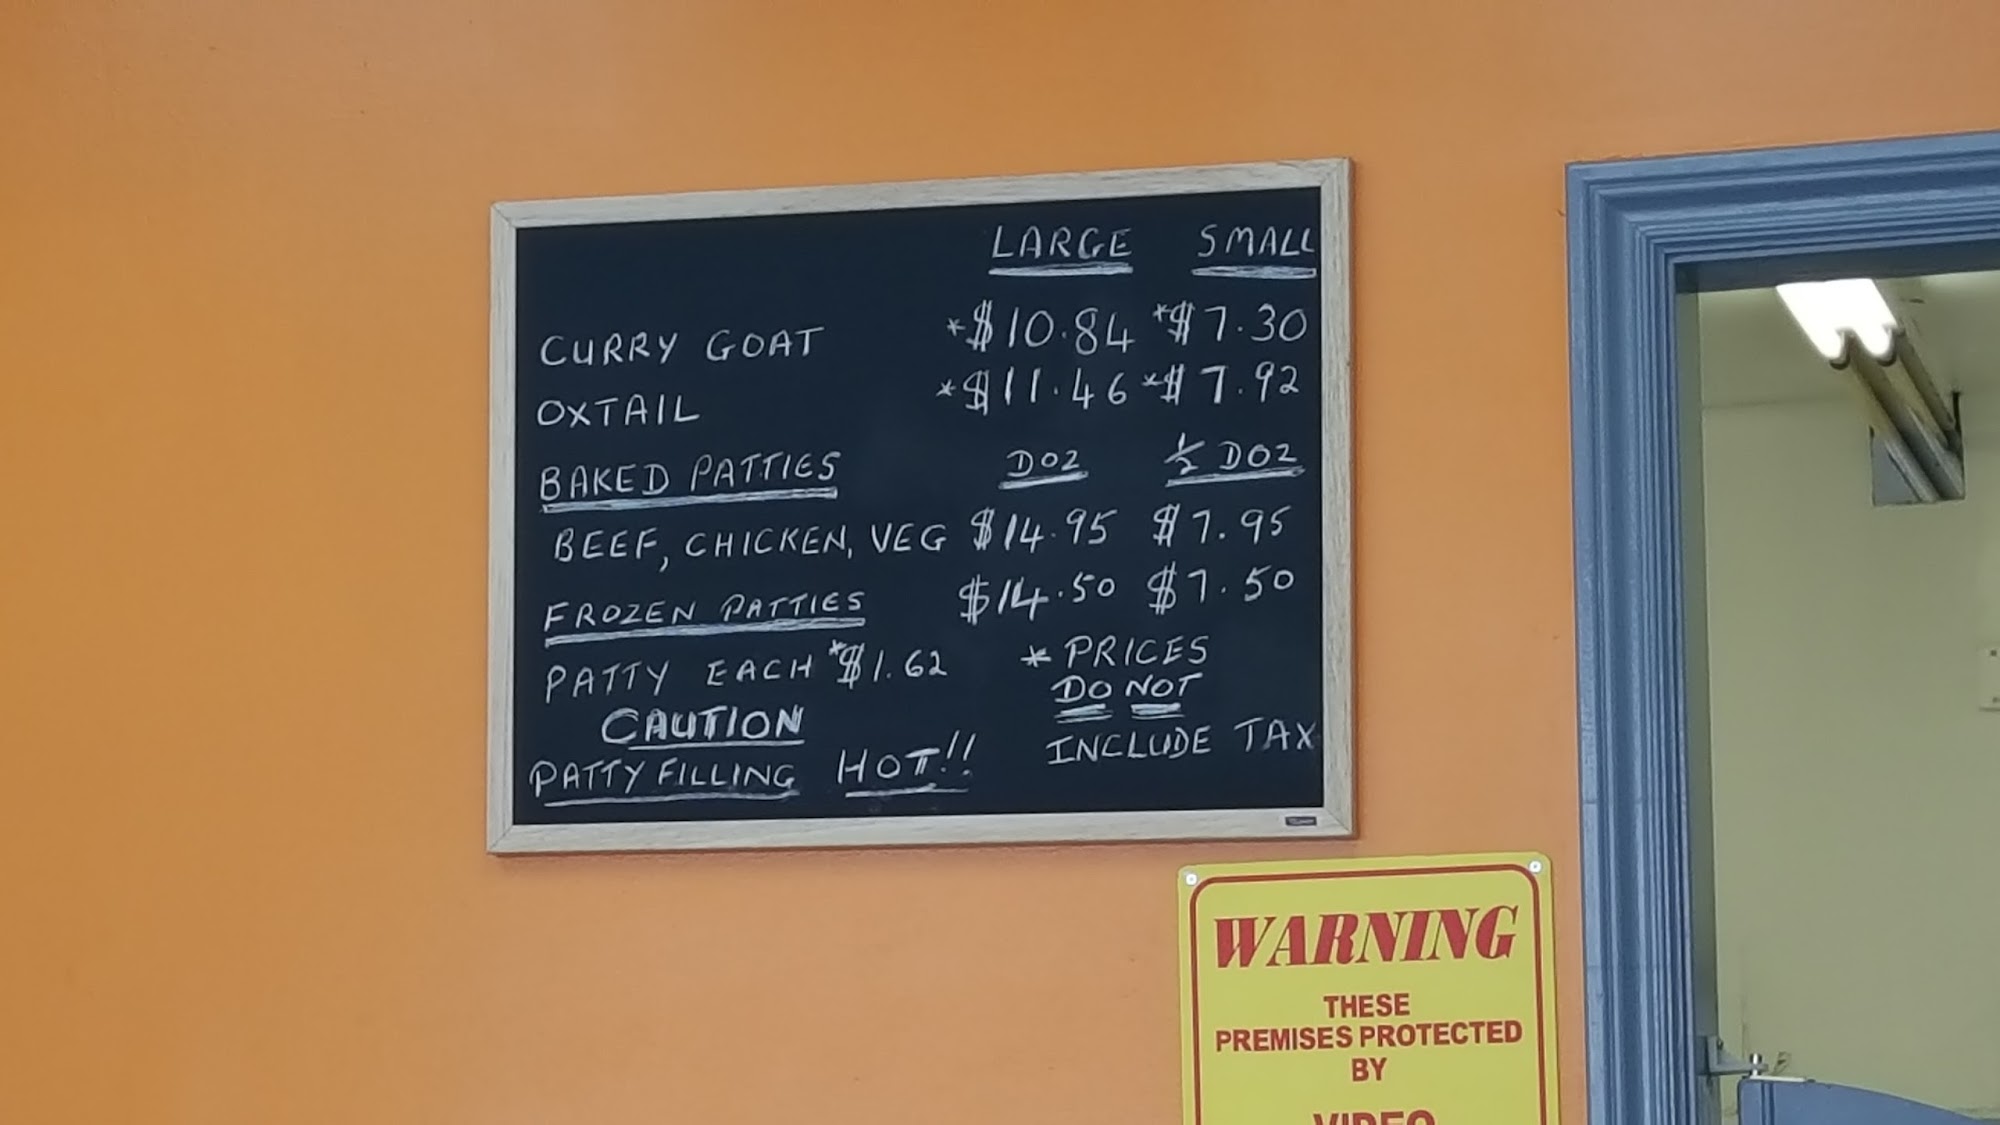 LARGE SMALL
CURRY GOAT *$10.84 *$7.30
OXTAIL *$11.46 *$7.92
BAKED PATTIES DOZ ½ DOZ
BEEF, CHICKEN, VEG $14.95 $7.95
FROZEN PATTIES $14.50 $7.50
PATTY EACH *$1.62
CAUTION
PATTY FILLING HOT!!
* PRICES
DO NOT
INCLUDE TAX
WARNING
THESE
PREMISES PROTECTED
BY
VIDEO